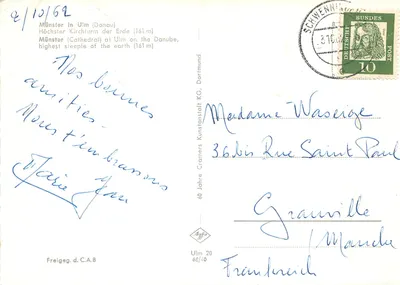 2/10/62
Münster in Ulm (Donau)
Höchster Kirchturm der Erde (161 m)
Münster (Cathedral) at Ulm on the Danube,
highest steeple of the earth (161 m)
Nos bonnes
amitiés.
Nous t'embrassons
Marie Jean
Freigeg. d. C.A.B
60 Jahre Cramers Kunstanstalt KG, Dortmund
Agfa
Ulm 20
SCHWENNINGEN
DEUTSCHE BUNDESPOST
10
Madame Waserge
36 bis Rue Saint Paul
Granville
/Manche
Frankreich